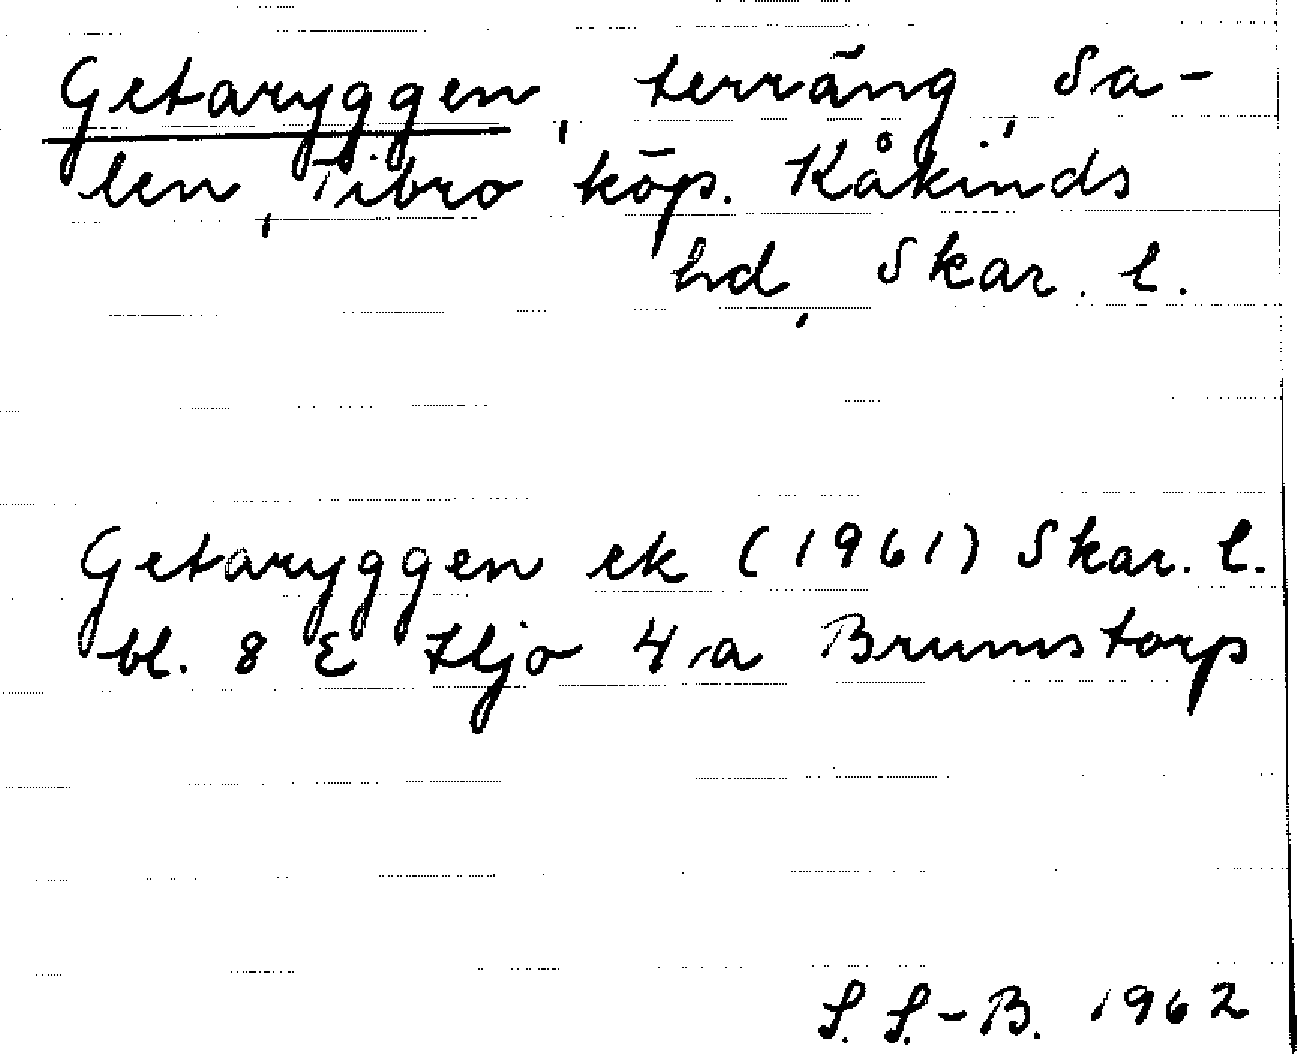 Getaryggen, terräng, Sa-
len, Tibro köp. Kåkinds
hd, Skar. l.
Getaryggen ek (1961) Skar. l.
bl. 8 E Hjo 4 a Brumstorp
S. S.-B. 1962